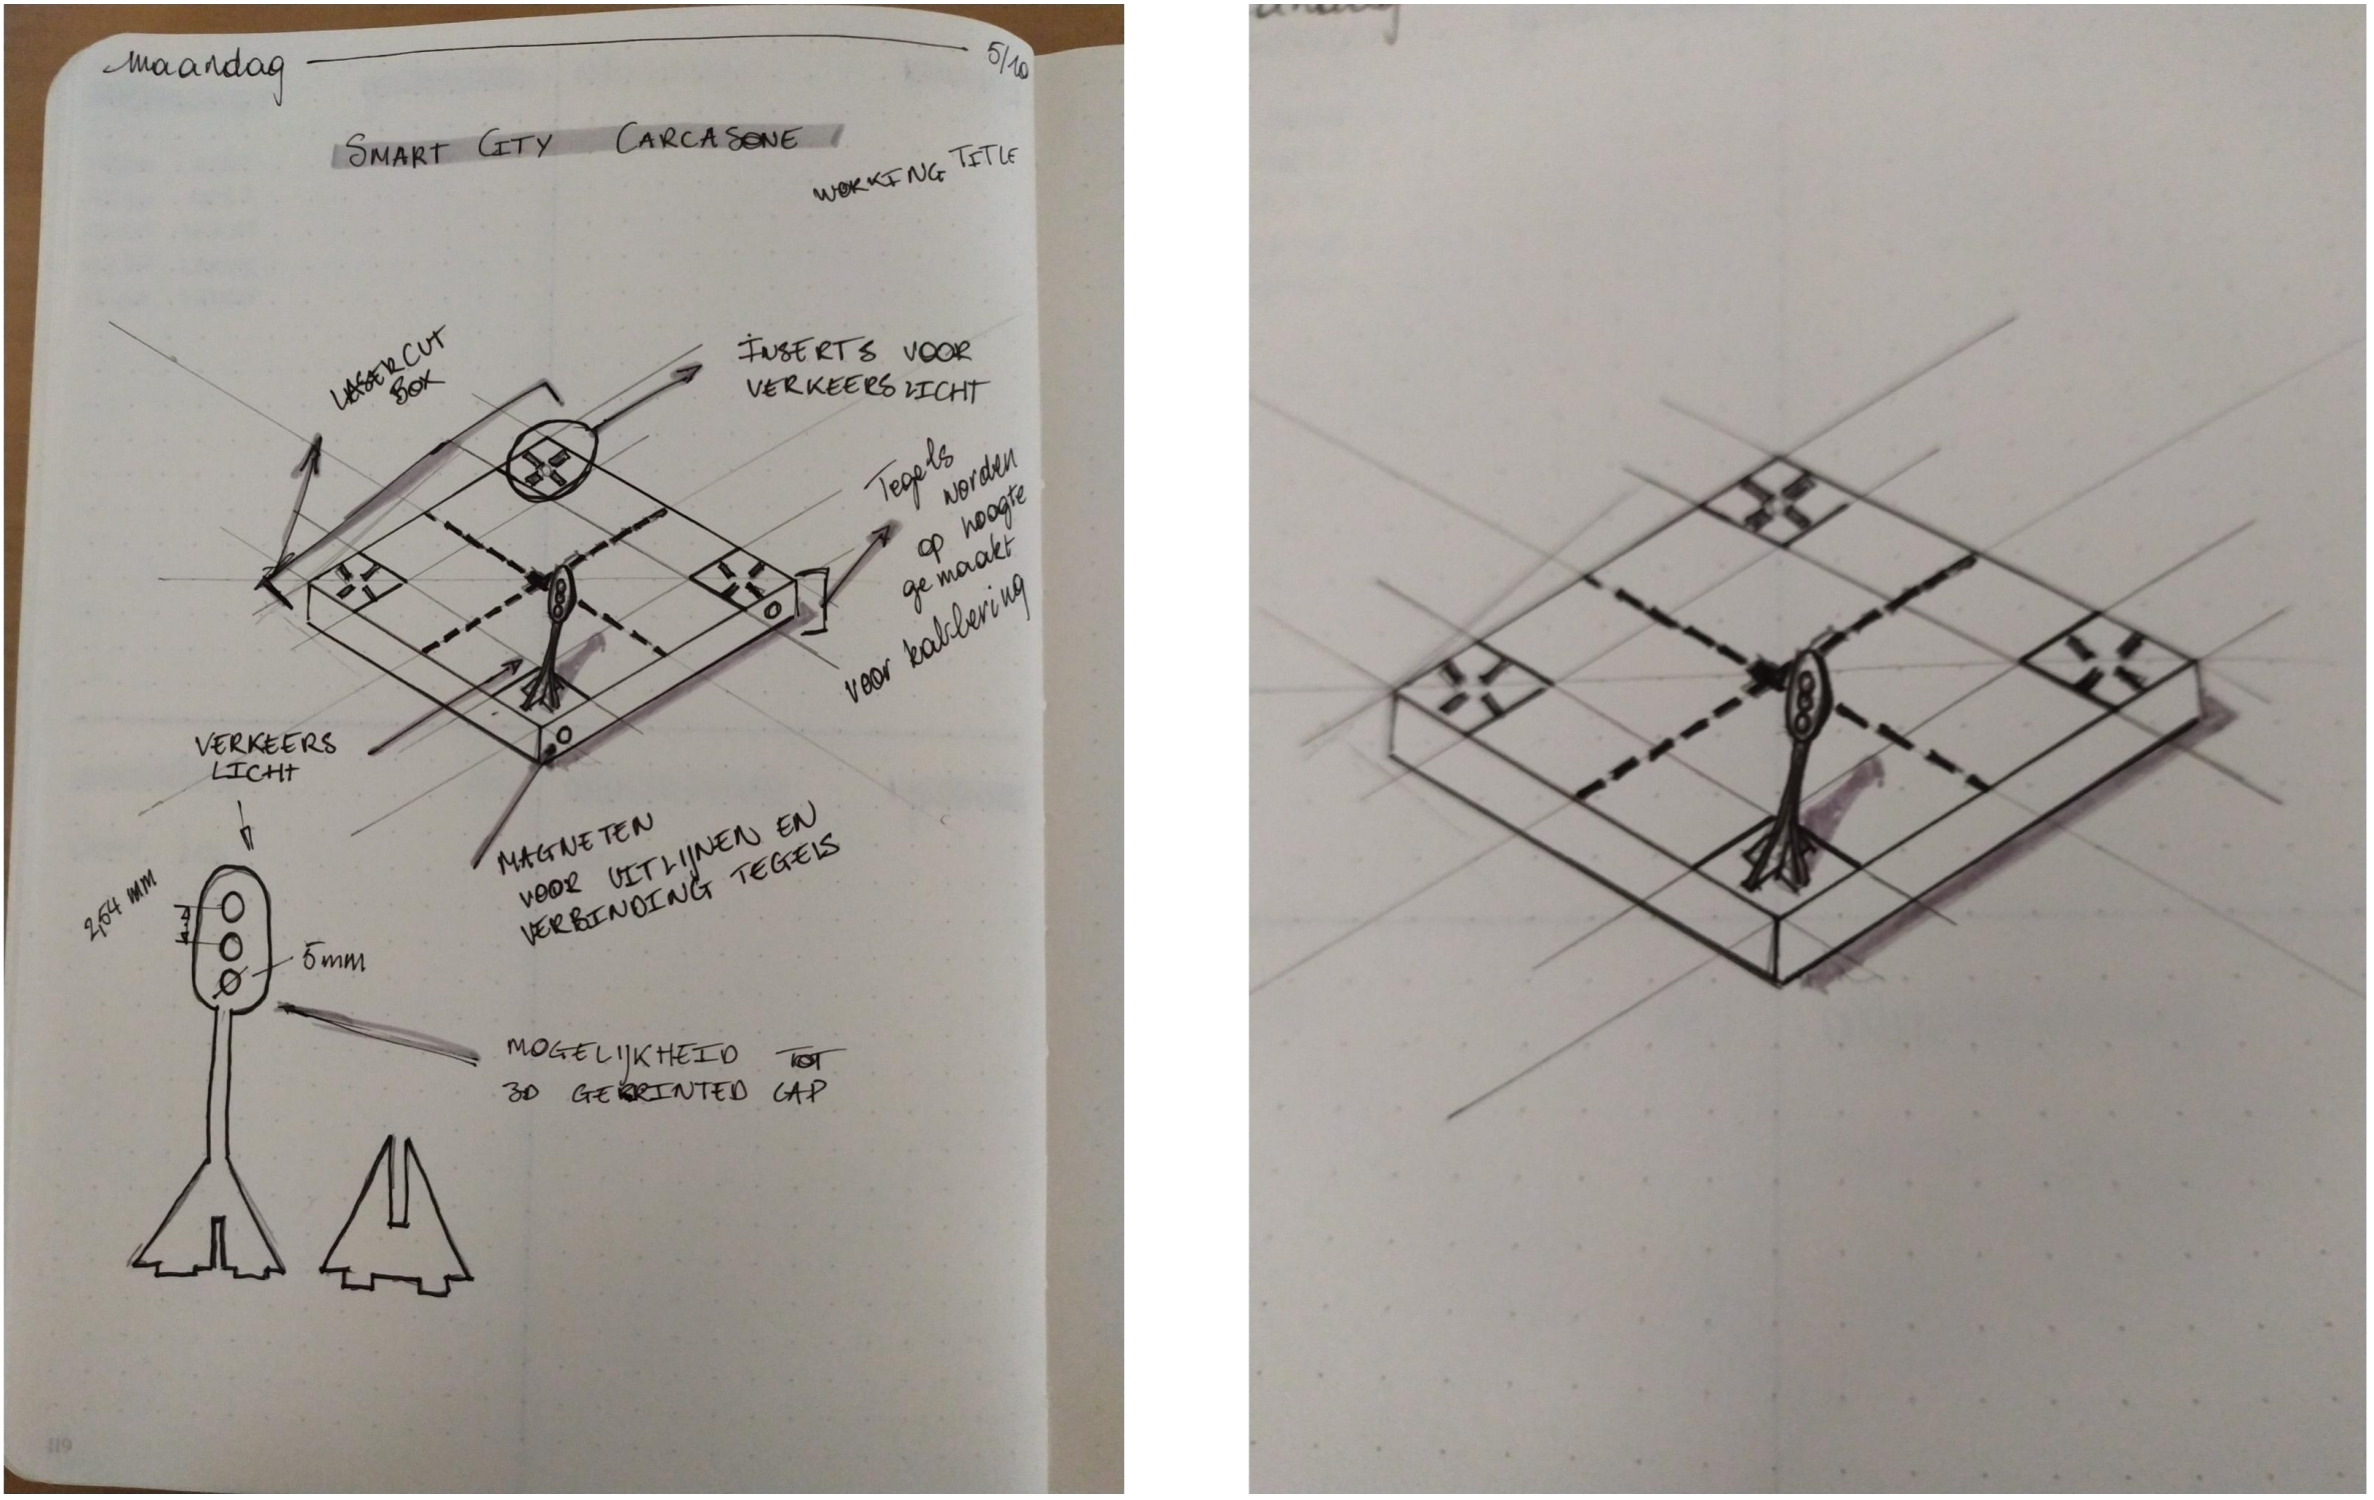 maandag 5/10
SMART CITY CARCASONE
WORKING TITLE
LASERCUT
BOX
INSERTS VOOR
VERKEERSLICHT
Tegels
worden
op hoogte
gemaakt
voor kabbering
VERKEERS
LICHT
MAGNETEN
VOOR UITLIJNEN EN
VERBINDING TEGELS
2,54 mm
5mm
MOGELIJKHEID TOT
3D GEPRINTED CAP
119